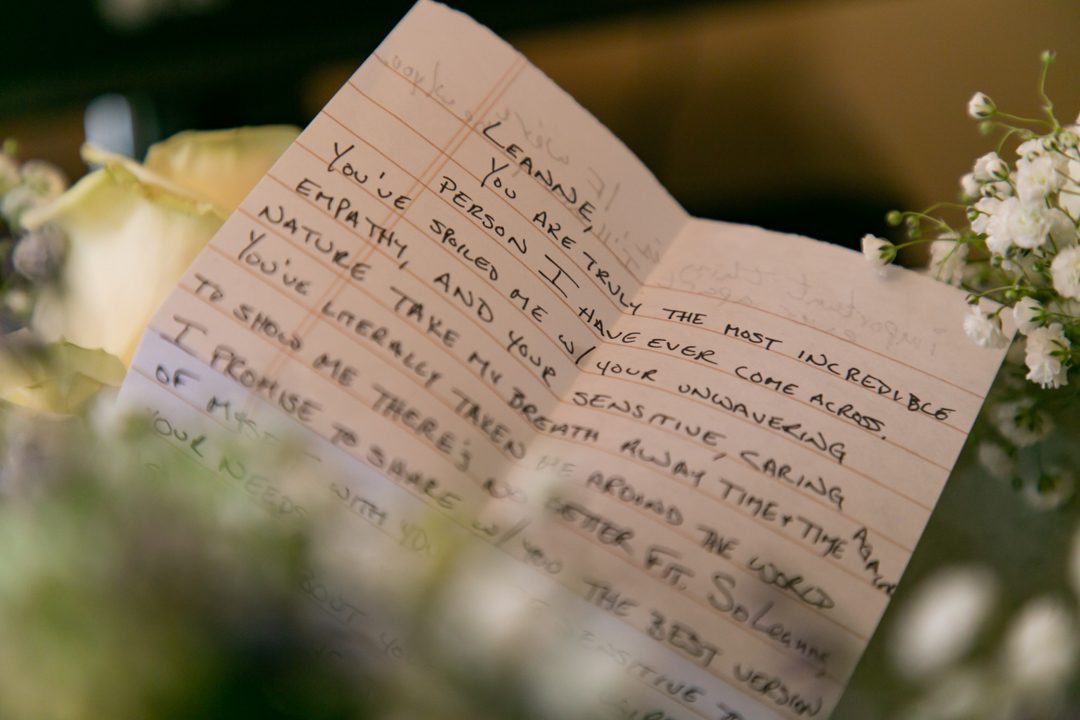 LEANNE,
YOU ARE TRULY THE MOST INCREDIBLE
PERSON I HAVE EVER COME ACROSS.
YOU'VE SPOILED ME W/ YOUR UNWAVERING
EMPATHY, AND YOUR SENSITIVE, CARING
NATURE TAKE MY BREATH AWAY TIME + TIME AGAIN
YOU'VE LITERALLY TAKEN ME AROUND THE WORLD
TO SHOW ME THERE'S NO BETTER FIT. So Leanne,
I PROMISE TO SHARE W/ YOU THE BEST VERSION
OF WITH SENSITIVE
YOUR NEEDS